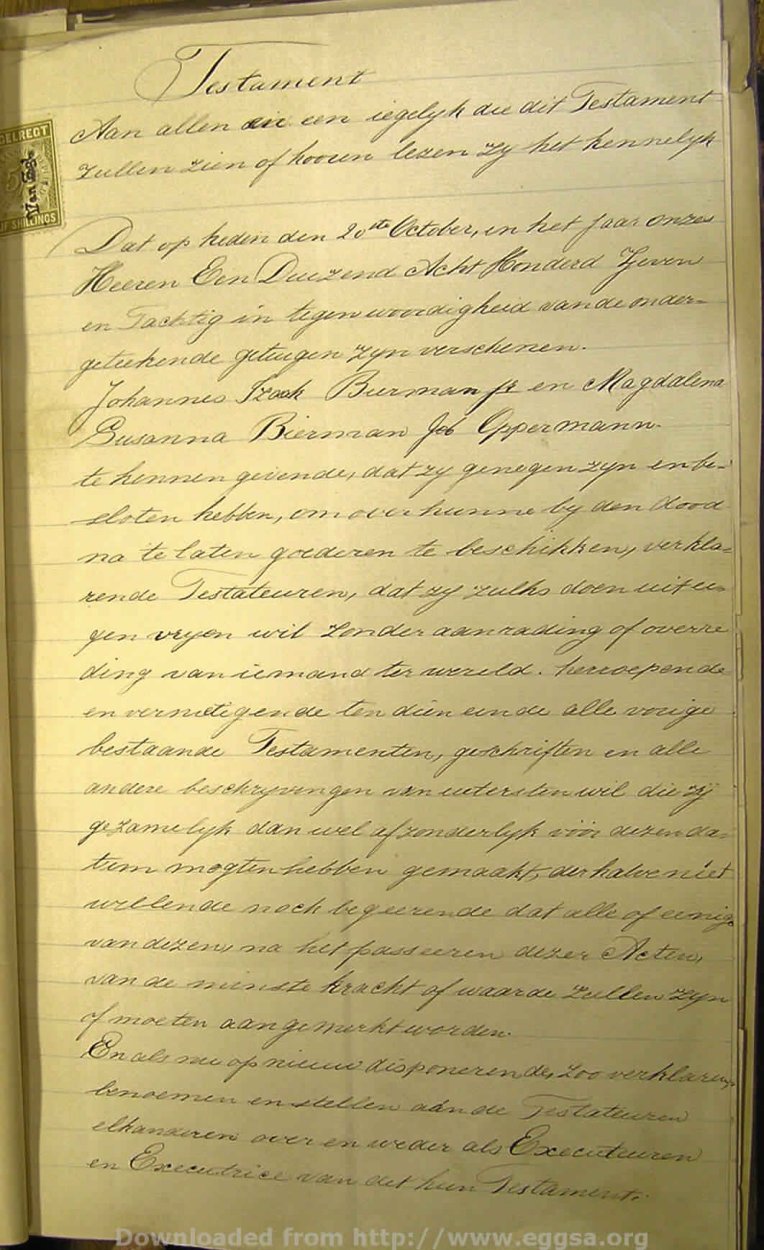 Testament
Aan allen en een iegelyk die dit Testament
zullen zien of hooren lezen zy het kennelyk
Dat op heden den 20ste October, in het jaar onzes
Heeren Een Duizend Acht Honderd Zeven
en Tachtig in tegenwoordigheid van de onder-
geteekende getuigen zyn verschenen.
Johannes Izaak Bierman en Magdalena
Susanna Bierman geb Oppermann
te kennen gevende, dat zy genegen zyn en be-
sloten hebben, om over hunne by den dood
na te laten goederen te beschikken, verkla-
rende Testateuren, dat zy zulks doen uit ei-
gen vryen wil zonder aanrading of overre
ding van iemand ter wereld. herroepende
en vernietigende ten dien einde alle vorige
bestaande Testamenten, geschriften en alle
andere beschryvingen van uitersten wil die zij
gezamelyk dan wel afzonderlyk vóór dezen da-
tum mogten hebben gemaakt, derhalve niet
willende noch begeerende dat alle of eenige
van dezen, na het passeeren dezer Acten,
van de minste kracht of waarde zullen zyn
of moeten aangemerkt worden.
En als nu op nieuw disponerende, zoo verklaren,
benoemen en stellen aan de Testateuren
elkanderen over en weder als Executeuren
en Executrice van dit hun Testament.
ZEGELREGT
5
SHILLINGS
Downloaded from http://www.eggsa.org